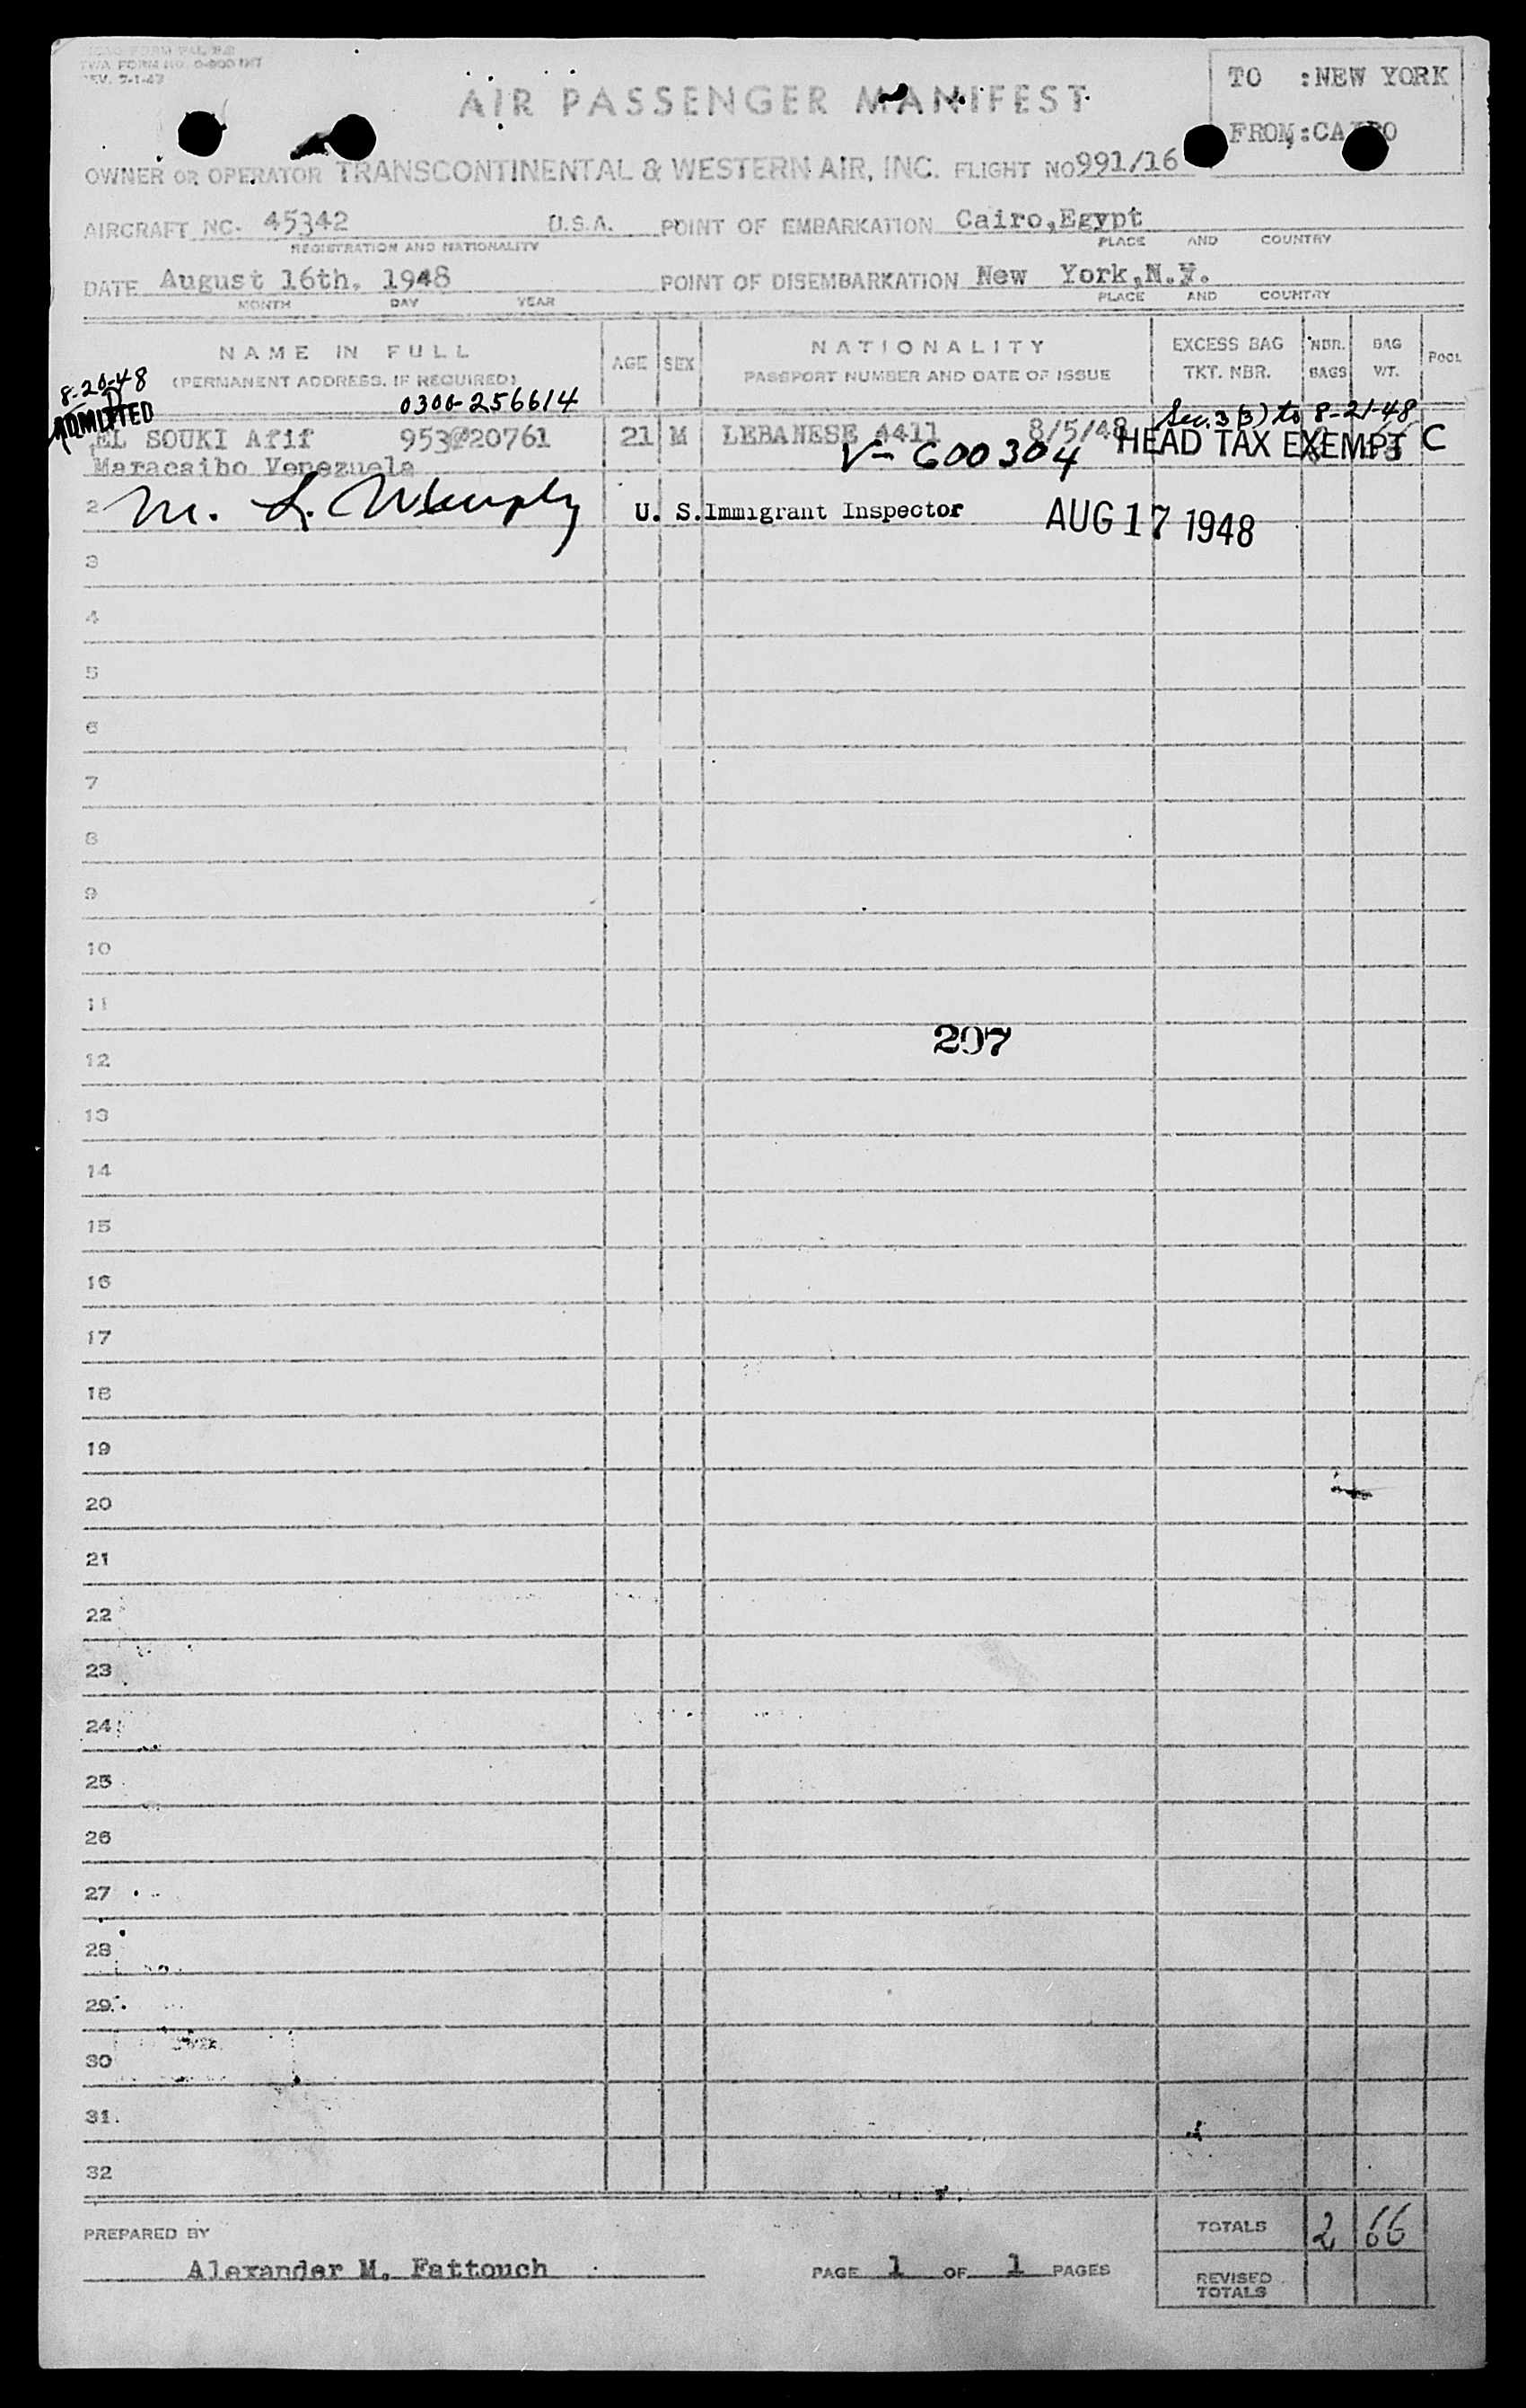 TWA FORM NO. 0-900 INT
REV. 7-1-47
TO :NEW YORK
AIR PASSENGER MANIFEST
FROM:CAIRO
OWNER OR OPERATOR TRANSCONTINENTAL & WESTERN AIR, INC. FLIGHT NO 991/16
AIRCRAFT NC- 45342 U.S.A. POINT OF EMBARKATION Cairo,Egypt
REGISTRATION AND NATIONALITY PLACE AND COUNTRY
DATE August 16th. 1948 POINT OF DISEMBARKATION New York,N.Y.
MONTH DAY YEAR PLACE AND COUNTRY
NAME IN FULL AGE SEX NATIONALITY EXCESS BAG NBR. BAG POOL
(PERMANENT ADDRESS. IF REQUIRED) PASSPORT NUMBER AND DATE OF ISSUE TKT. NBR. BAGS WT.
8-20-48
0300-256614 Sec. 3(3) to 8-21-48
ADMITTED
EL SOUKI Afif 953@20761 21 M LEBANESE 4411 8/5/48 HEAD TAX EXEMPT C
Maracaibo Venezuela V-600304
2 M. L. Murphy U. S. Immigrant Inspector AUG 17 1948
3
4
5
6
7
8
9
10
11
207
12
13
14
15
16
17
18
19
20
21
22
23
24
25
26
27
28
29
30
31
32
TOTALS 2 66
PREPARED BY
Alexander M. Fattouch PAGE 1 OF 1 PAGES
REVISED
TOTALS